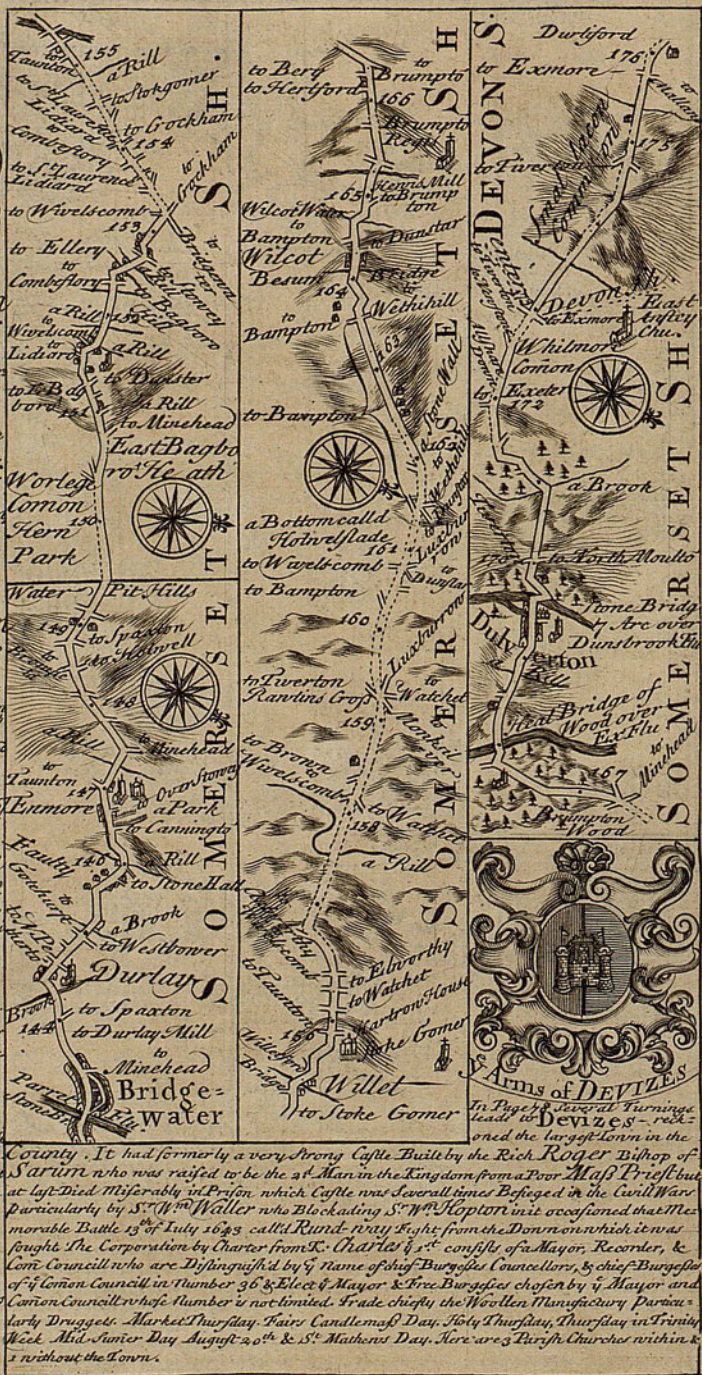 155
Taunton
a Rill
to Stokgomer
to St. Laurence Lidiard
to Crockham
to Combeflory
154
to
Crockham
to St. Laurence
Lidiard
to Wivelscomb
153
to
Bridgewater
to Ellery
to
Combeflory
to Stowey
to Bagboro
a Rill
152
to
Wivelscomb
to
Lidiard
a Rill
to Dunster
to E. Bag
boro
a Rill
151
to Minehead
East Bagbo
ro' Heath
Worlege
Comon
150
Hern
Park
Water
Pit Hills
149
to Spaxton
to Holwell
148
a Rill
to Minehead
to
Taunton
147
to Over Stowey
Enmore
a Park
to Cannington
146
a Rill
to Stone Hall
a Brook
to Westbower
Durlay
Brook
to Spaxton
144
to Durlay Mill
to
Minehead
Parret
Flu.
Stone Br.
Bridge=
water
SOMERSET SH.
to Bery
to Hertford
to
Brumpto
166
Brumpto
Regis
Hennis Mill
165
to Brump
ton
Wilcot Water
to
Bampton
to Dunstar
Wilcot
Besum
Bridge
164
to
Bampton
Wethihill
163
a Stone Wall
to Bampton
162
to
Wethihill
to
Dunstar
a Bottom calld
Holwelslade
161
Luxburron
to Wavelscomb
to
Dunstar
to Bampton
160
Luxburrow
to Twerton
Rawlins Cross
to
Watchet
159
Monksilver
to Brown
to
Wivelscomb
to Watchet
158
a Rill
to Taunton
to Elworthy
to Watchet
Hartrow House
156
Stoke Gomer
Willet
Bridge
Willet
to Stoke Gomer
SOMERSETSH
Durlsford
176
to Exmore
to
Mulland
175
to Tiverton
Small Lacon
Common
DEVONS.
enters
Devon Sh.
to Tiverton
to Exmore
East
Anstey
Chu.
Whilmor
Comon
to
Exeter
172
a Brook
170
to North Moulto
Stone Bridg
7 Arc over
Dunsbrook Flu
Dulverton
a
Rill
Heal Bridge of
Wood over
Ex Flu
to
Minehead
167
Brumpton
Wood
SOMERSET SH.
ẏ Arms of DEVIZES
In Page 78 Several Turnings
leads to Devizes - reck-
oned the largest Town in the
County. It had formerly a very strong Castle Built by the Rich Roger Bishop of
Sarum who was raised to be the 2d Man in the Kingdom from a Poor Mass Priest but
at last Died Miserably in Prison which Castle was Severall times Besieged in the Civill Wars
Particularly by Sr. Wm Waller who Blockading Sr. Wm Hopton in it occasioned that Me-
morable Battle 13th of July 1643 call'd Rund-way Fight from the Down on which it was
fought The Corporation by Charter from K. Charles ẏ 1st consists of a Mayor, Recorder, &
Com Councill who are Distinguish'd by ẏ name of chief Burgesses Councellors, & chief Burgesses
of ẏ Comon Councill in Number 36 & Elect ẏ Mayor & Free Burgesses chosen by ẏ Mayor and
Comon Councill whose Number is not limited. Trade chiefly the Woollen Manufactury Particu-
larly Druggets. Market Thursday. Fairs Candlemass Day. Holy Thursday, Thursday in Trinity
Week Mid-Sumer Day August 20th & St. Mathews Day. Here are 3 Parish Churches within &
1 without the Town.